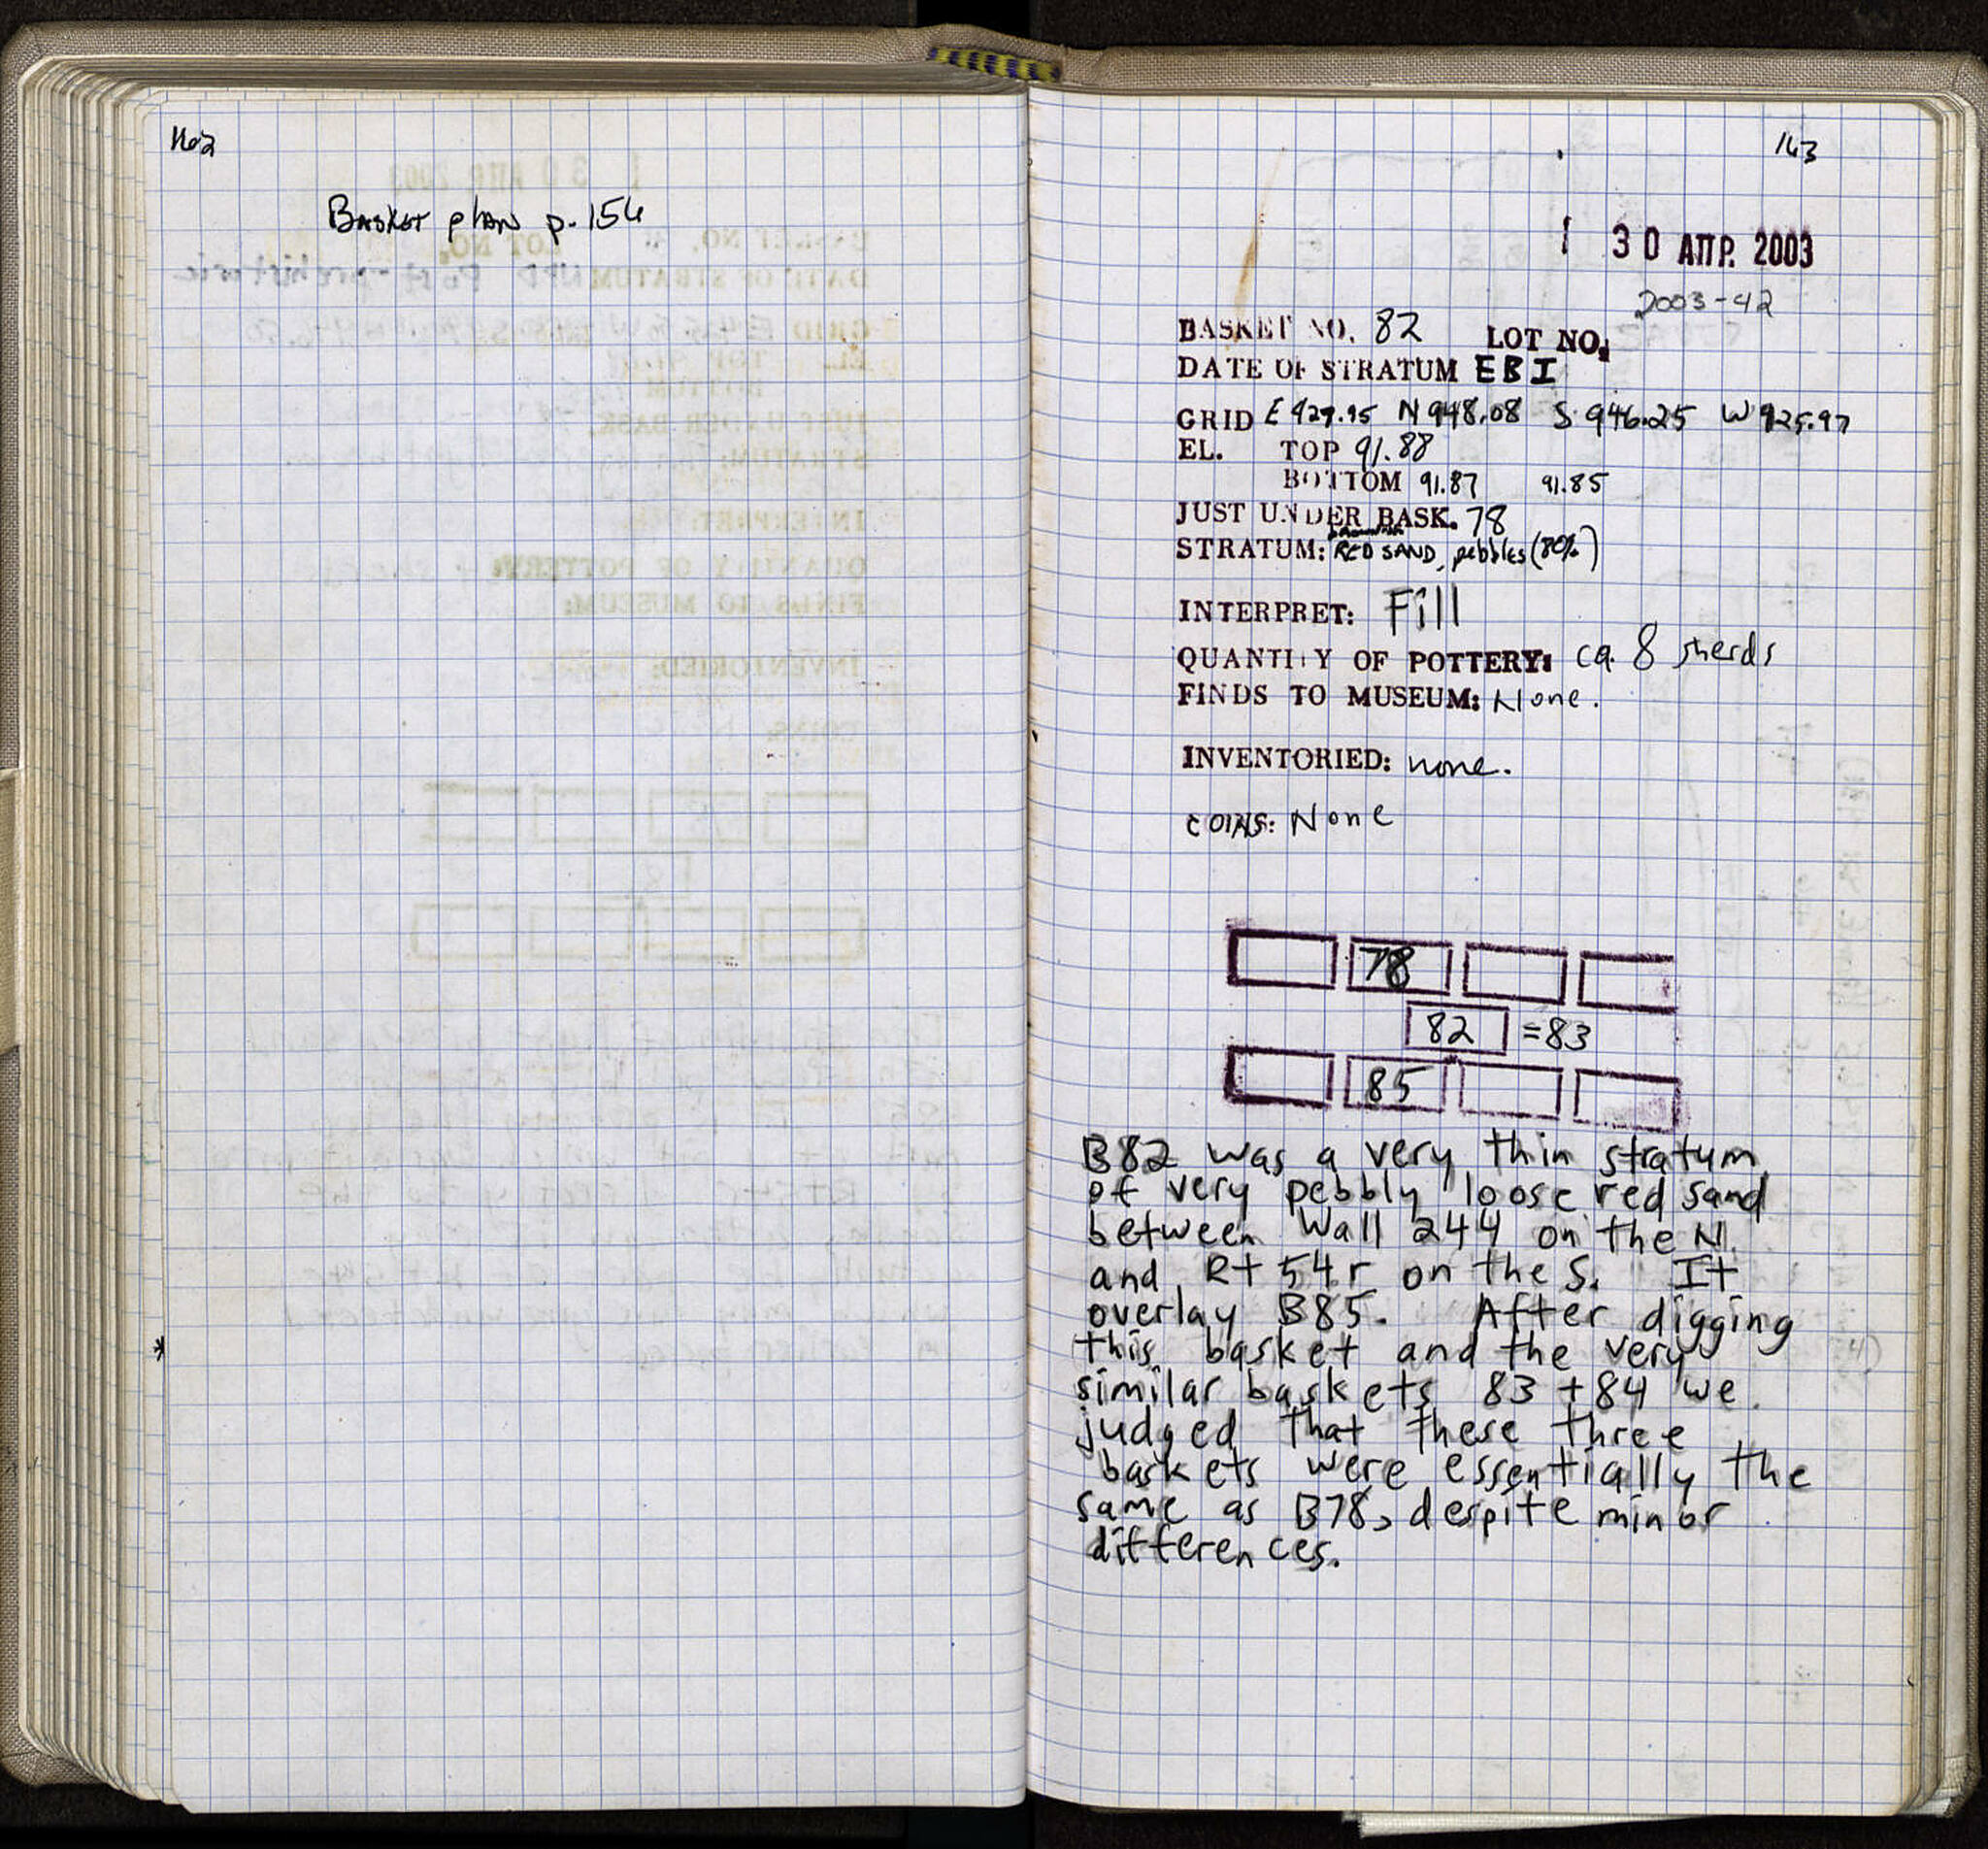 162
Basket plan p. 154
163
30 ΑΠΡ. 2003
2003-42
BASKET NO. 82 LOT NO.
DATE OF STRATUM EBI
GRID E 929.95 N 948.08 S 946.25 W 925.97
EL. TOP 91.88
BOTTOM 91.87 91.85
JUST UNDER BASK. 78
brownish
STRATUM: RED SAND, pebbles (80%)
INTERPRET: Fill
QUANTITY OF POTTERY: ca. 8 sherds
FINDS TO MUSEUM: None.
INVENTORIED: none.
COINS: None
78
82 =83
85
B82 was a very thin stratum
of very pebbly loose red sand
between Wall 244 on the N
and Rt 54r on the S. It
overlay B85. After digging
this basket and the very
similar baskets 83 + 84 we
judged that these three
baskets were essentially the
same as B78, despite minor
differences.